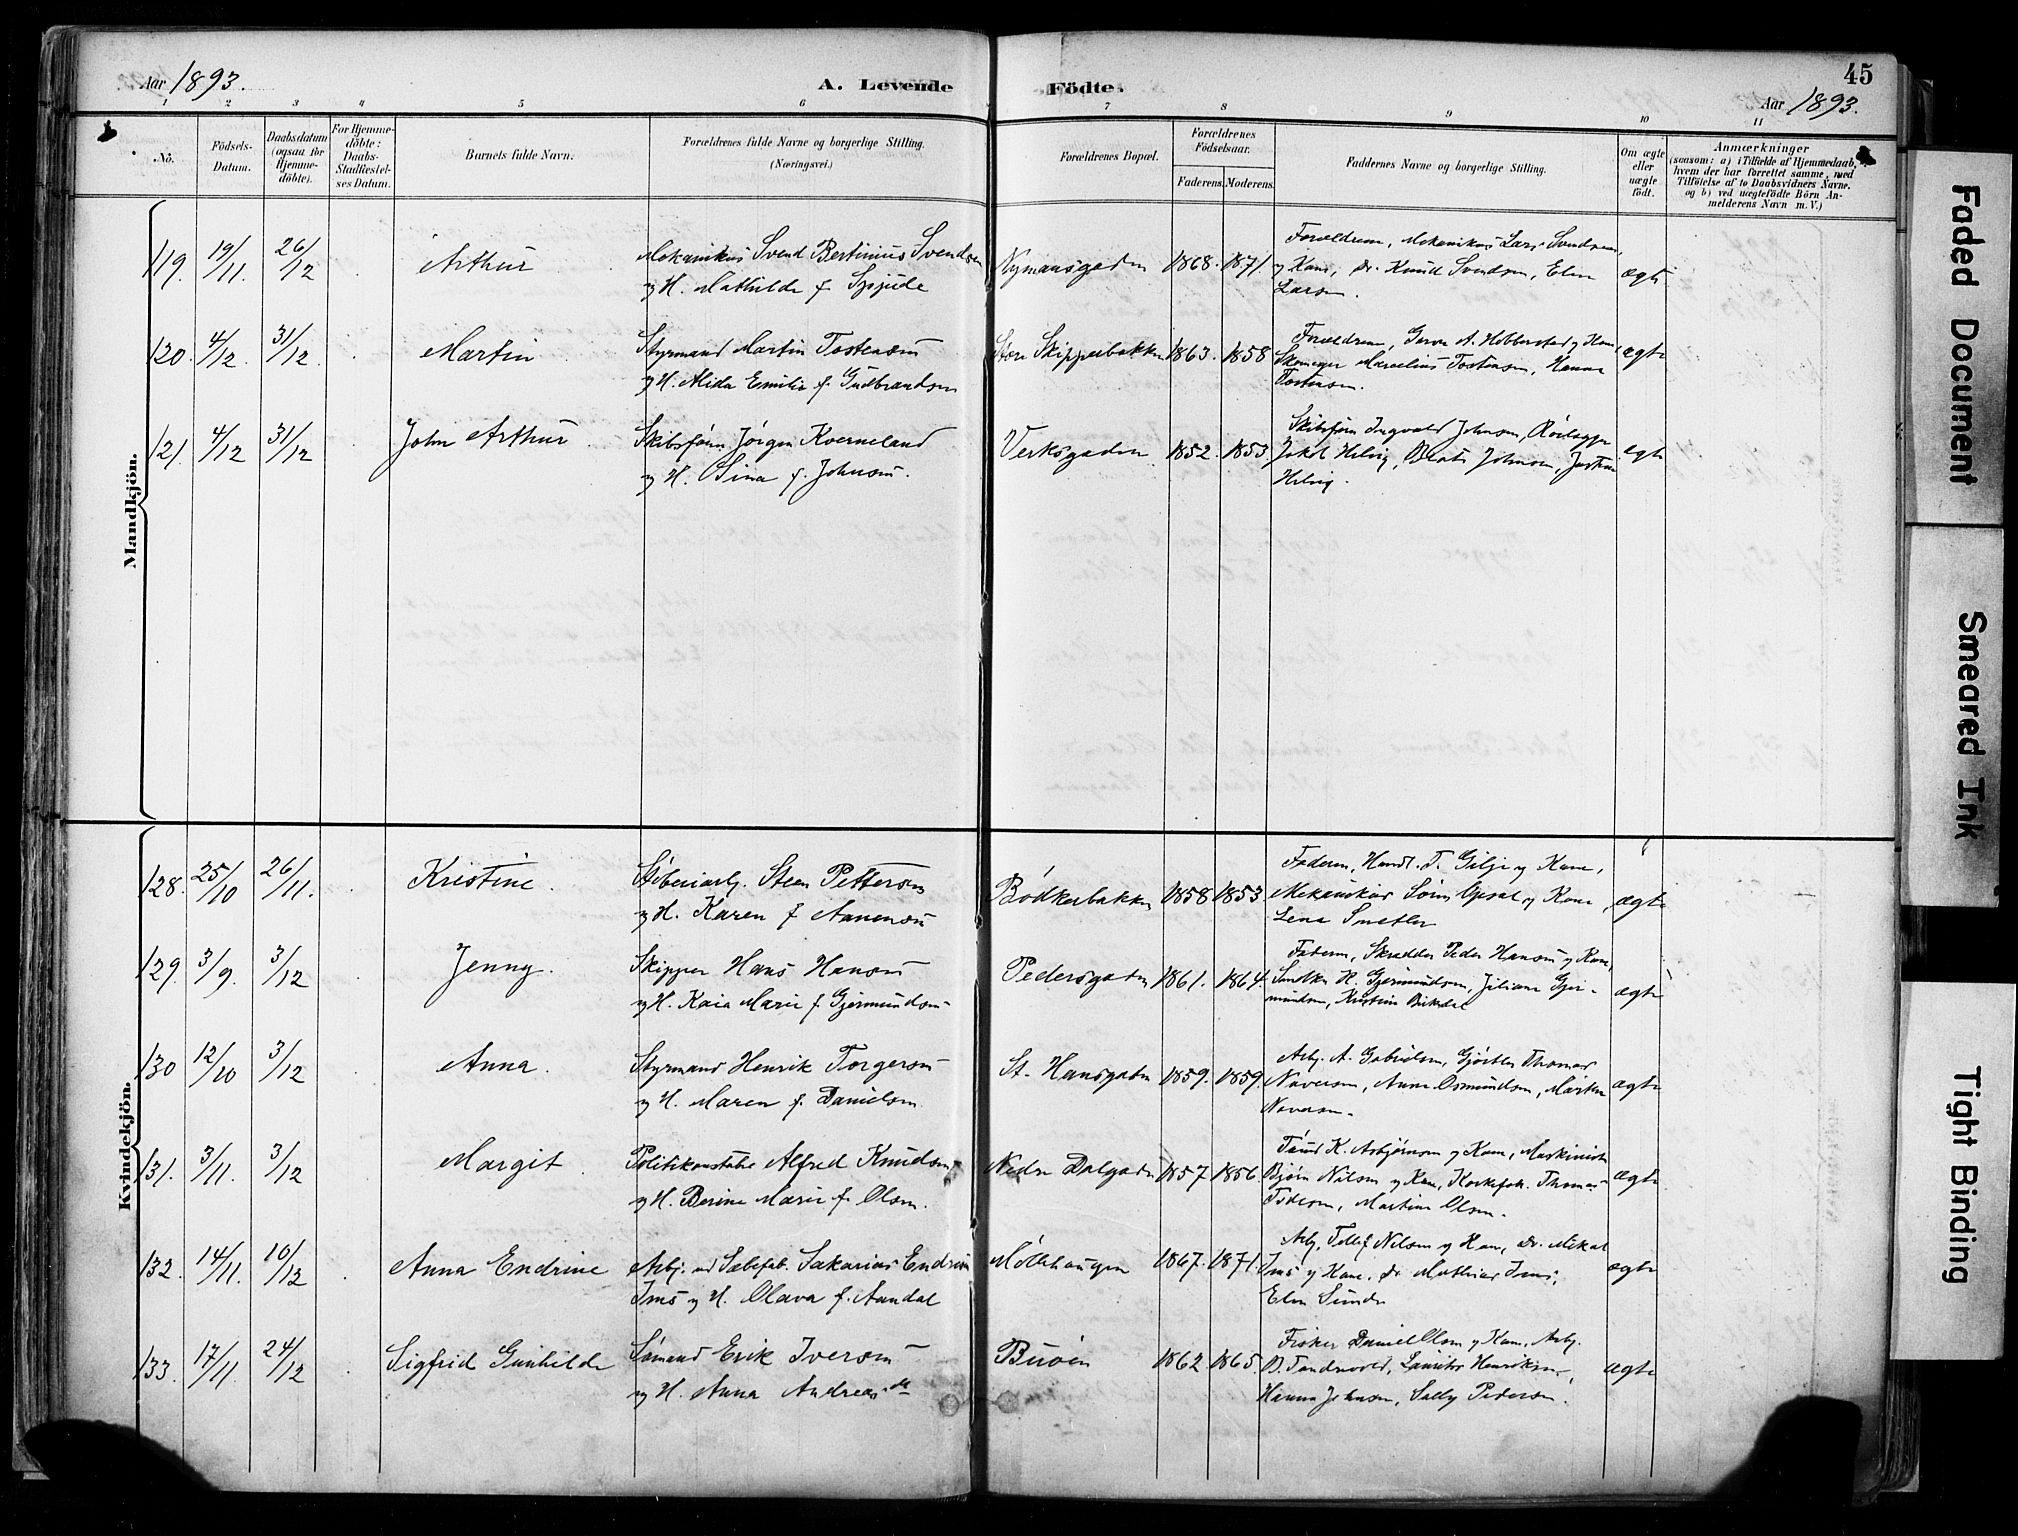 Aar 1893.
A. Levende Födte.
45
Aar 1893.
1 2 3 4 5 6 7 8 9 10 11
No.
Födsels-Datum.
Daabsdatum (ogsaa for Hjemmedöbte).
For Hjemmedöbte: Daabs-Stadfæstelses Datum.
Barnets fulde Navn.
Forældrenes fulde Navne og borgerlige Stilling.
(Næringsvei.)
Forældrenes Bopæl.
Forældrenes Födselsaar.
Faderens. Moderens.
Faddernes Navne og borgerlige Stilling.
Om ægte eller uægte födt.
Anmærkninger
(saasom: a) i Tilfælde af Hjemmedaab, hvem der har forrettet samme, med Tilföielse af to Daabsvidners Navne. og b) ved uægtefödte Börn Anmelderens Navn m. V.)
Mandkjön.
119. 19/11. 26/12 Arthur Mekanikus Svend Bertinius Svendsen
og H. Mathilde f. Spjude
Nymansgaden 1868. 1871. Forældrene, Mekanikus Lars Svendsen,
og Kone, Do. Knud Svendsen, Elen
Larsen.
ægte
120. 4/12. 31/12. Martin Styrmand Martin Tostensen
og H. Alida Emilie f. Gudbrandsen
Store Skipperbakken 1863. 1858 Forældrene, Garver A. Hebberstad og Kone,
Skomager Marcelius Tostensen, Hanna
Tostensen.
ægte
121. 4/12 31/12 John Arthur Skibsfører Jørgen Kverneland
og H. Sina f. Johnsen.
Verksgaden 1852. 1853 Skibsfører Ingvald Johnsen,
Jakob Helvig, Beate Johnsen,
Helvig.
ægte
Kvindekjön.
128. 25/10 26/11. Kristine. Støberiarb. Steen Pettersen
og H. Karen f. Aanensen
Bødkerbakken 1858 1853. Faderen, Handl. T. Gilje og Kone,
Mekanikus Sørn Opsal og Kone,
Lena Smetler
ægte
129. 3/9. 3/12 Jenny. Skipper Hans Hansen
og H. Kaia Marie f. Gjermundsen
Pedersgaden 1861. 1864. Faderen, Skrædder Peder Hansen og Kone,
Snedker H. Gjermundsen, Juliane Gjer-
mundsen, Kristine
ægte
130 12/10 3/12 Anna. Styrmand Henrik Torgersen
og H. Maren f. Danielsen.
St. Hansgaden 1859. 1859. Arb. A. Gabrielsen, Gjørtler Thomas
Naversen, Anne Osmundsen, Marthe
Naversen.
ægte
131. 3/11. 3/12 Margit. Politikonstabel Alfred Knudsen
og H. Berine Marie f. Olsen.
Nedre Dalgaden 1857 1856. K. Asbjørnsen og Kone, Maskinist
Bjørn Nilsen og Kone, Thomas
Martine Olsen.
ægte
132. 14/11. 10/12 Anna Endrine Arb. ved Sæbefab. Sakarias Endresen
Ims og H. Olava f. Aandal
Møllehaugen 1867. 1871. Arb. Tollef Nilsen og Kone, Do. Mikal
Ims og Kone. Do Mathias Ims,
Elen Sunde
ægte
133. 17/11. 24/12 Sigfrid Gunhilde Sømand Erik Iversen
og H. Anna Andreasdt
Buøen 1862. 1865. Fisker Daniel Olsen og Kone, Arb.
B. Tandrevold, Lauritz Henriksen,
Hanna Johnsen, Sally Pedersen.
ægte
Faded Document
Smeared Ink
Tight Binding